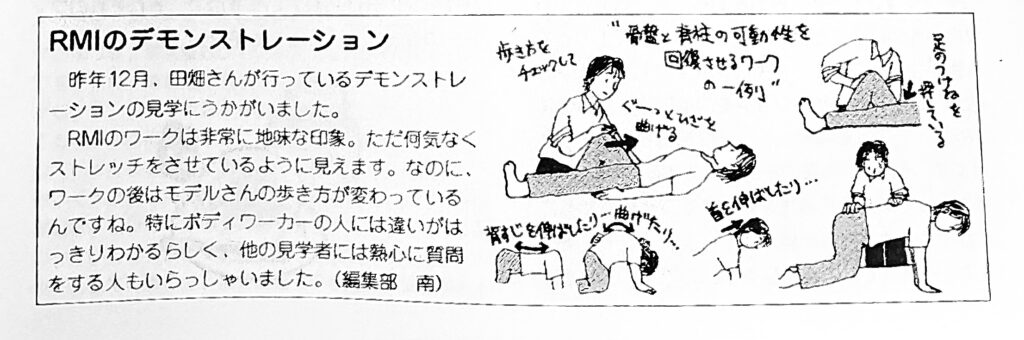 RMIのデモンストレーション
昨年12月、田畑さんが行っているデモンストレ
ーションの見学にうかがいました。
RMIのワークは非常に地味な印象。ただ何気なく
ストレッチをさせているように見えます。なのに、
ワークの後はモデルさんの歩き方が変わっている
んですね。特にボディワーカーの人には違いがは
っきりわかるらしく、他の見学者には熱心に質問
をする人もいらっしゃいました。(編集部 南)
歩き方を
チェックして
"骨盤と脊柱の可動性を
回復させるワーク
の一例"
ぐーっとひざを
曲げる
足のつけねを
押している
背すじを伸ばしたり…
曲げたり…
首を伸ばしたり…